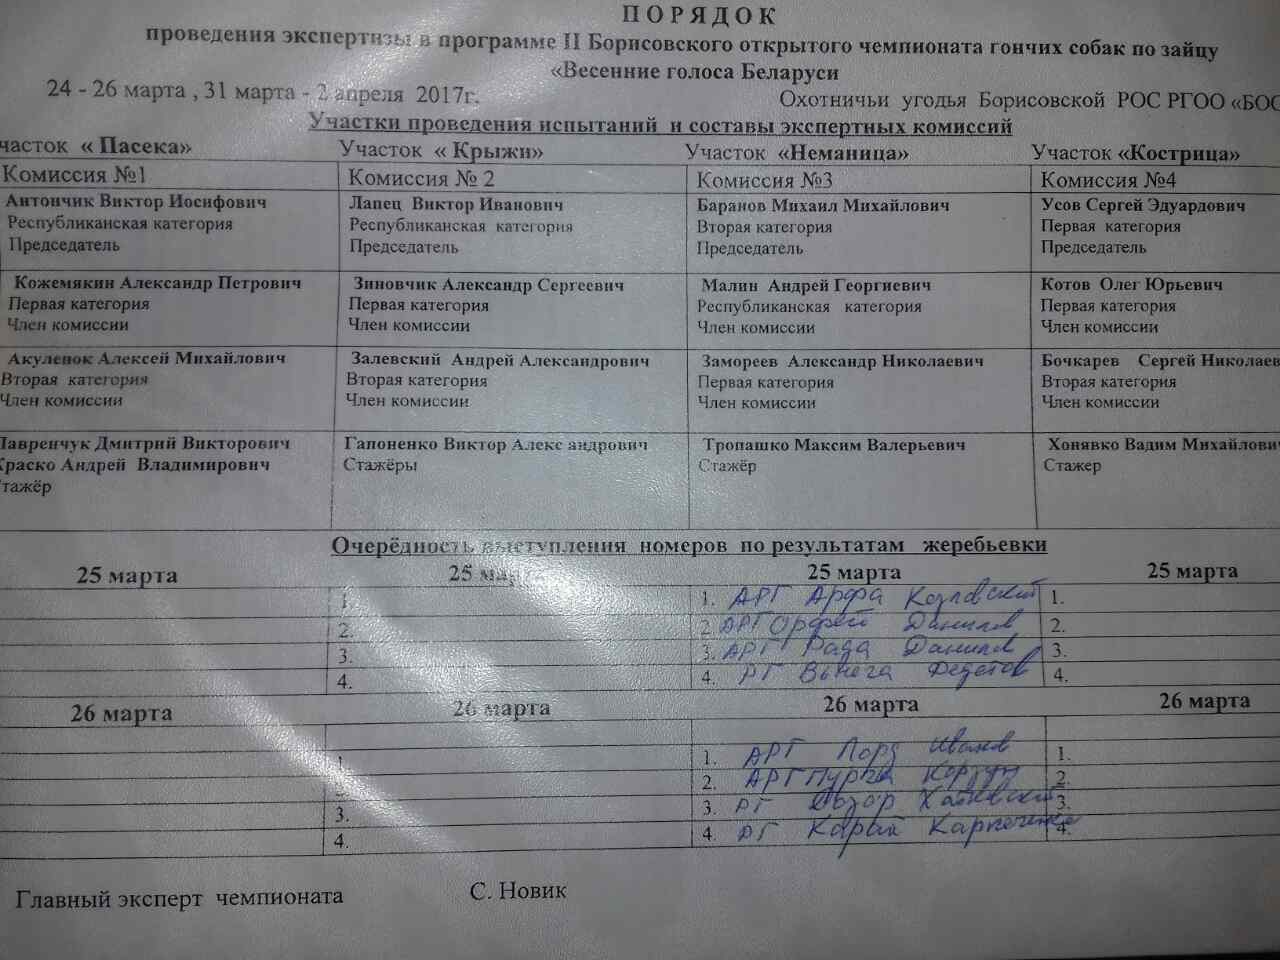 ПОРЯДОК
проведения экспертизы в программе II Борисовского открытого чемпионата гончих собак по зайцу
«Весенние голоса Беларуси
24 - 26 марта , 31 марта - 2 апреля 2017г. Охотничьи угодья Борисовской РОС РГОО «БОО
Участки проведения испытаний и составы экспертных комиссий
часток « Пасека» Участок « Крыжи» Участок «Неманица» Участок «Кострица»
Комиссия №1 Комиссия № 2 Комиссия №3 Комиссия №4
Антончик Виктор Иосифович Лапец Виктор Иванович Баранов Михаил Михайлович Усов Сергей Эдуардович
Республиканская категория Республиканская категория Вторая категория Первая категория
Председатель Председатель Председатель Председатель
Кожемякин Александр Петрович Зиновчик Александр Сергеевич Малин Андрей Георгиевич Котов Олег Юрьевич
Первая категория Первая категория Республиканская категория Первая категория
Член комиссии Член комиссии Член комиссии Член комиссии
Акуленок Алексей Михайлович Залевский Андрей Александрович Замореев Александр Николаевич Бочкарев Сергей Николаев
Вторая категория Вторая категория Первая категория Вторая категория
Член комиссии Член комиссии Член комиссии Член комиссии
Лавренчук Дмитрий Викторович Гапоненко Виктор Алекс андрович Тропашко Максим Валерьевич Хонявко Вадим Михайлович
Краско Андрей Владимирович Стажёры Стажёр Стажер
тажёр
Очерёдность выступления номеров по результатам жеребьевки
25 марта 25 марта 25 марта 25 марта
1. 1. АРГ Арфа Козловский 1.
2. 2. АРГ Орфей Данилов 2.
3. 3. АРГ Рада Данилов 3.
4. 4. РГ Вьюга Федотов 4.
26 марта 26 марта 26 марта 26 марта
1. 1. АРГ Лорд Иванов 1.
2. 2. АРГ Пурга Корзун 2.
3. 3. РГ 3.
4. 4. РГ Карай Карпеченко 4.
Главный эксперт чемпионата С. Новик